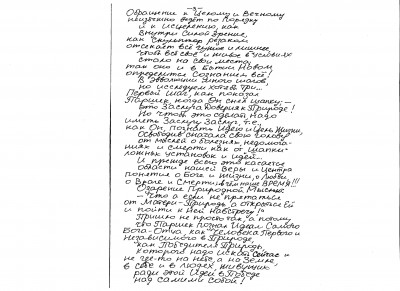 -3-
Обращение к Целому и Вечному
неизбежно ведёт по Порядку
и к исцелению, как
внутри Силой Зрение,
как Скульптор резцом
отсекает всё чужое и лишнее,
чтобы всё своё и живое в условиях
стало на свои места,
так оно и в Бытии Новом
определится Сознанием всё!
В Эволюции много шагов,
но исследуем хотя бы три...
Первый шаг, как показал
Паршек, когда Он снял шапку —
Это Заслуга Доверия к Природе!
Но чтоб это сделать, надо
иметь Заслугу Заслуг, т.е.,
как Он, познать Идею и Цель Жизни,
Освободив сначала свою голову
от мыслей о болезнях, недомога-
ниях и смерти как от шапки —
ложных установок и идей...
И прежде всего это касается
области нашей Веры и Центра
понятие о Боге и Жизни, о Любви
о Враге и Смерти в течение ВРЕМЯ!!!
Озарение Природной Мыслью
— Что а если не прятаться
от Матери-Природы, а открыться Ей
и пойти к Ней навстречу!"
Пришло не просто так, а потому,
что Паршек Познал Идеал Самого
Бога-Отца, как "Человека Первого и
Независимого в Природе,
как Победителя Природы,
которого надо искать Сейчас и
не где-то на небе, а на Земле,
в себе и в людях, живущих
ради этой Идеи в Победе
над самими собой!